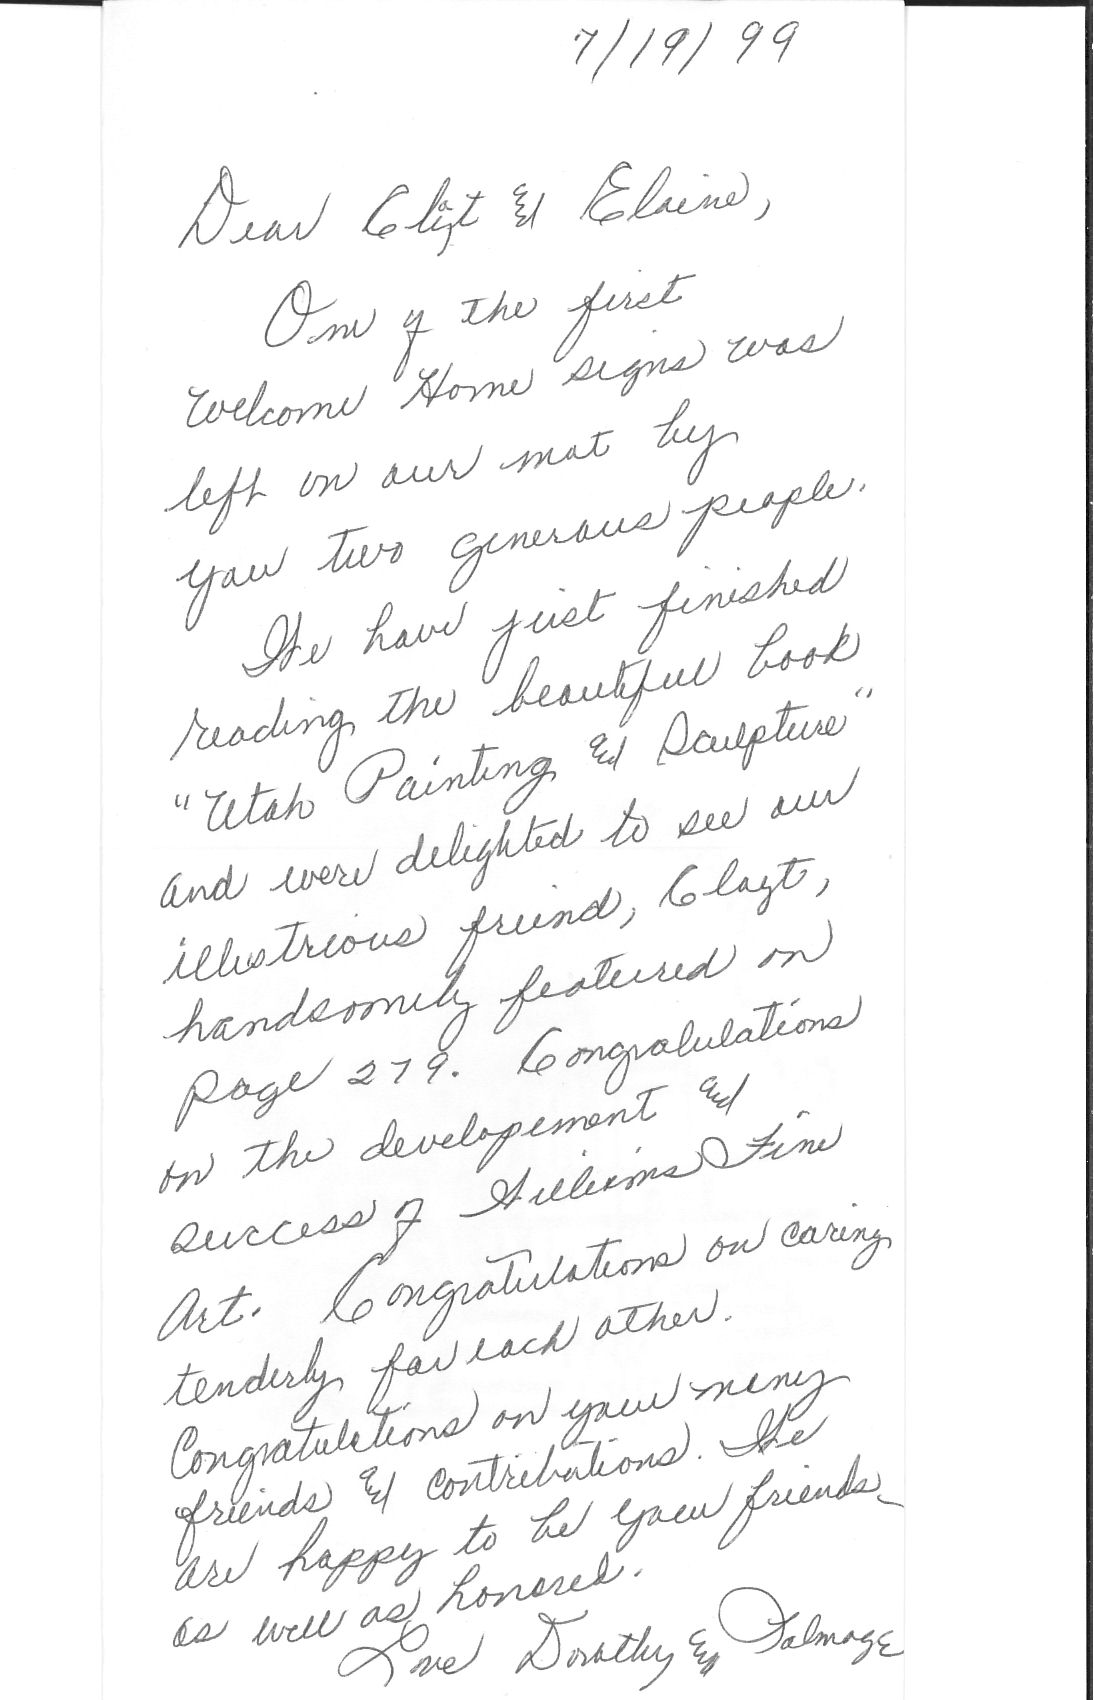 7/19/99
Dear Clayt & Elaine,
One of the first
Welcome Home signs was
left on our mat by
you two generous people.
We have just finished
reading the beautiful book
"Utah Painting & Sculpture"
and were delighted to see our
illustrious friend, Clayt,
handsomely featured on
page 279. Congratulations
on the developement &
success of Williams Fine
Art. Congratulations on caring
tenderly for each other.
Congratulations on your many
friends & contributions. We
are happy to be your friends -
as well as honored.
Love Dorothy & Talmage